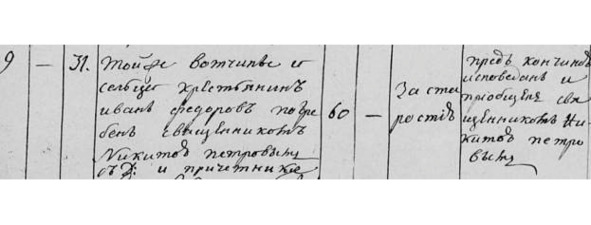 9 — 31. тойже вотчины и
селца крестьянинъ
иванъ федоровъ погре
бенъ священникомъ
Никитою петровымъ
съ Д: и причетники
60 —
За ста
ростiю
предъ кончиною
исповеданъ и
приобщенъ свя
щенникомъ Ни
китою петро
вымъ